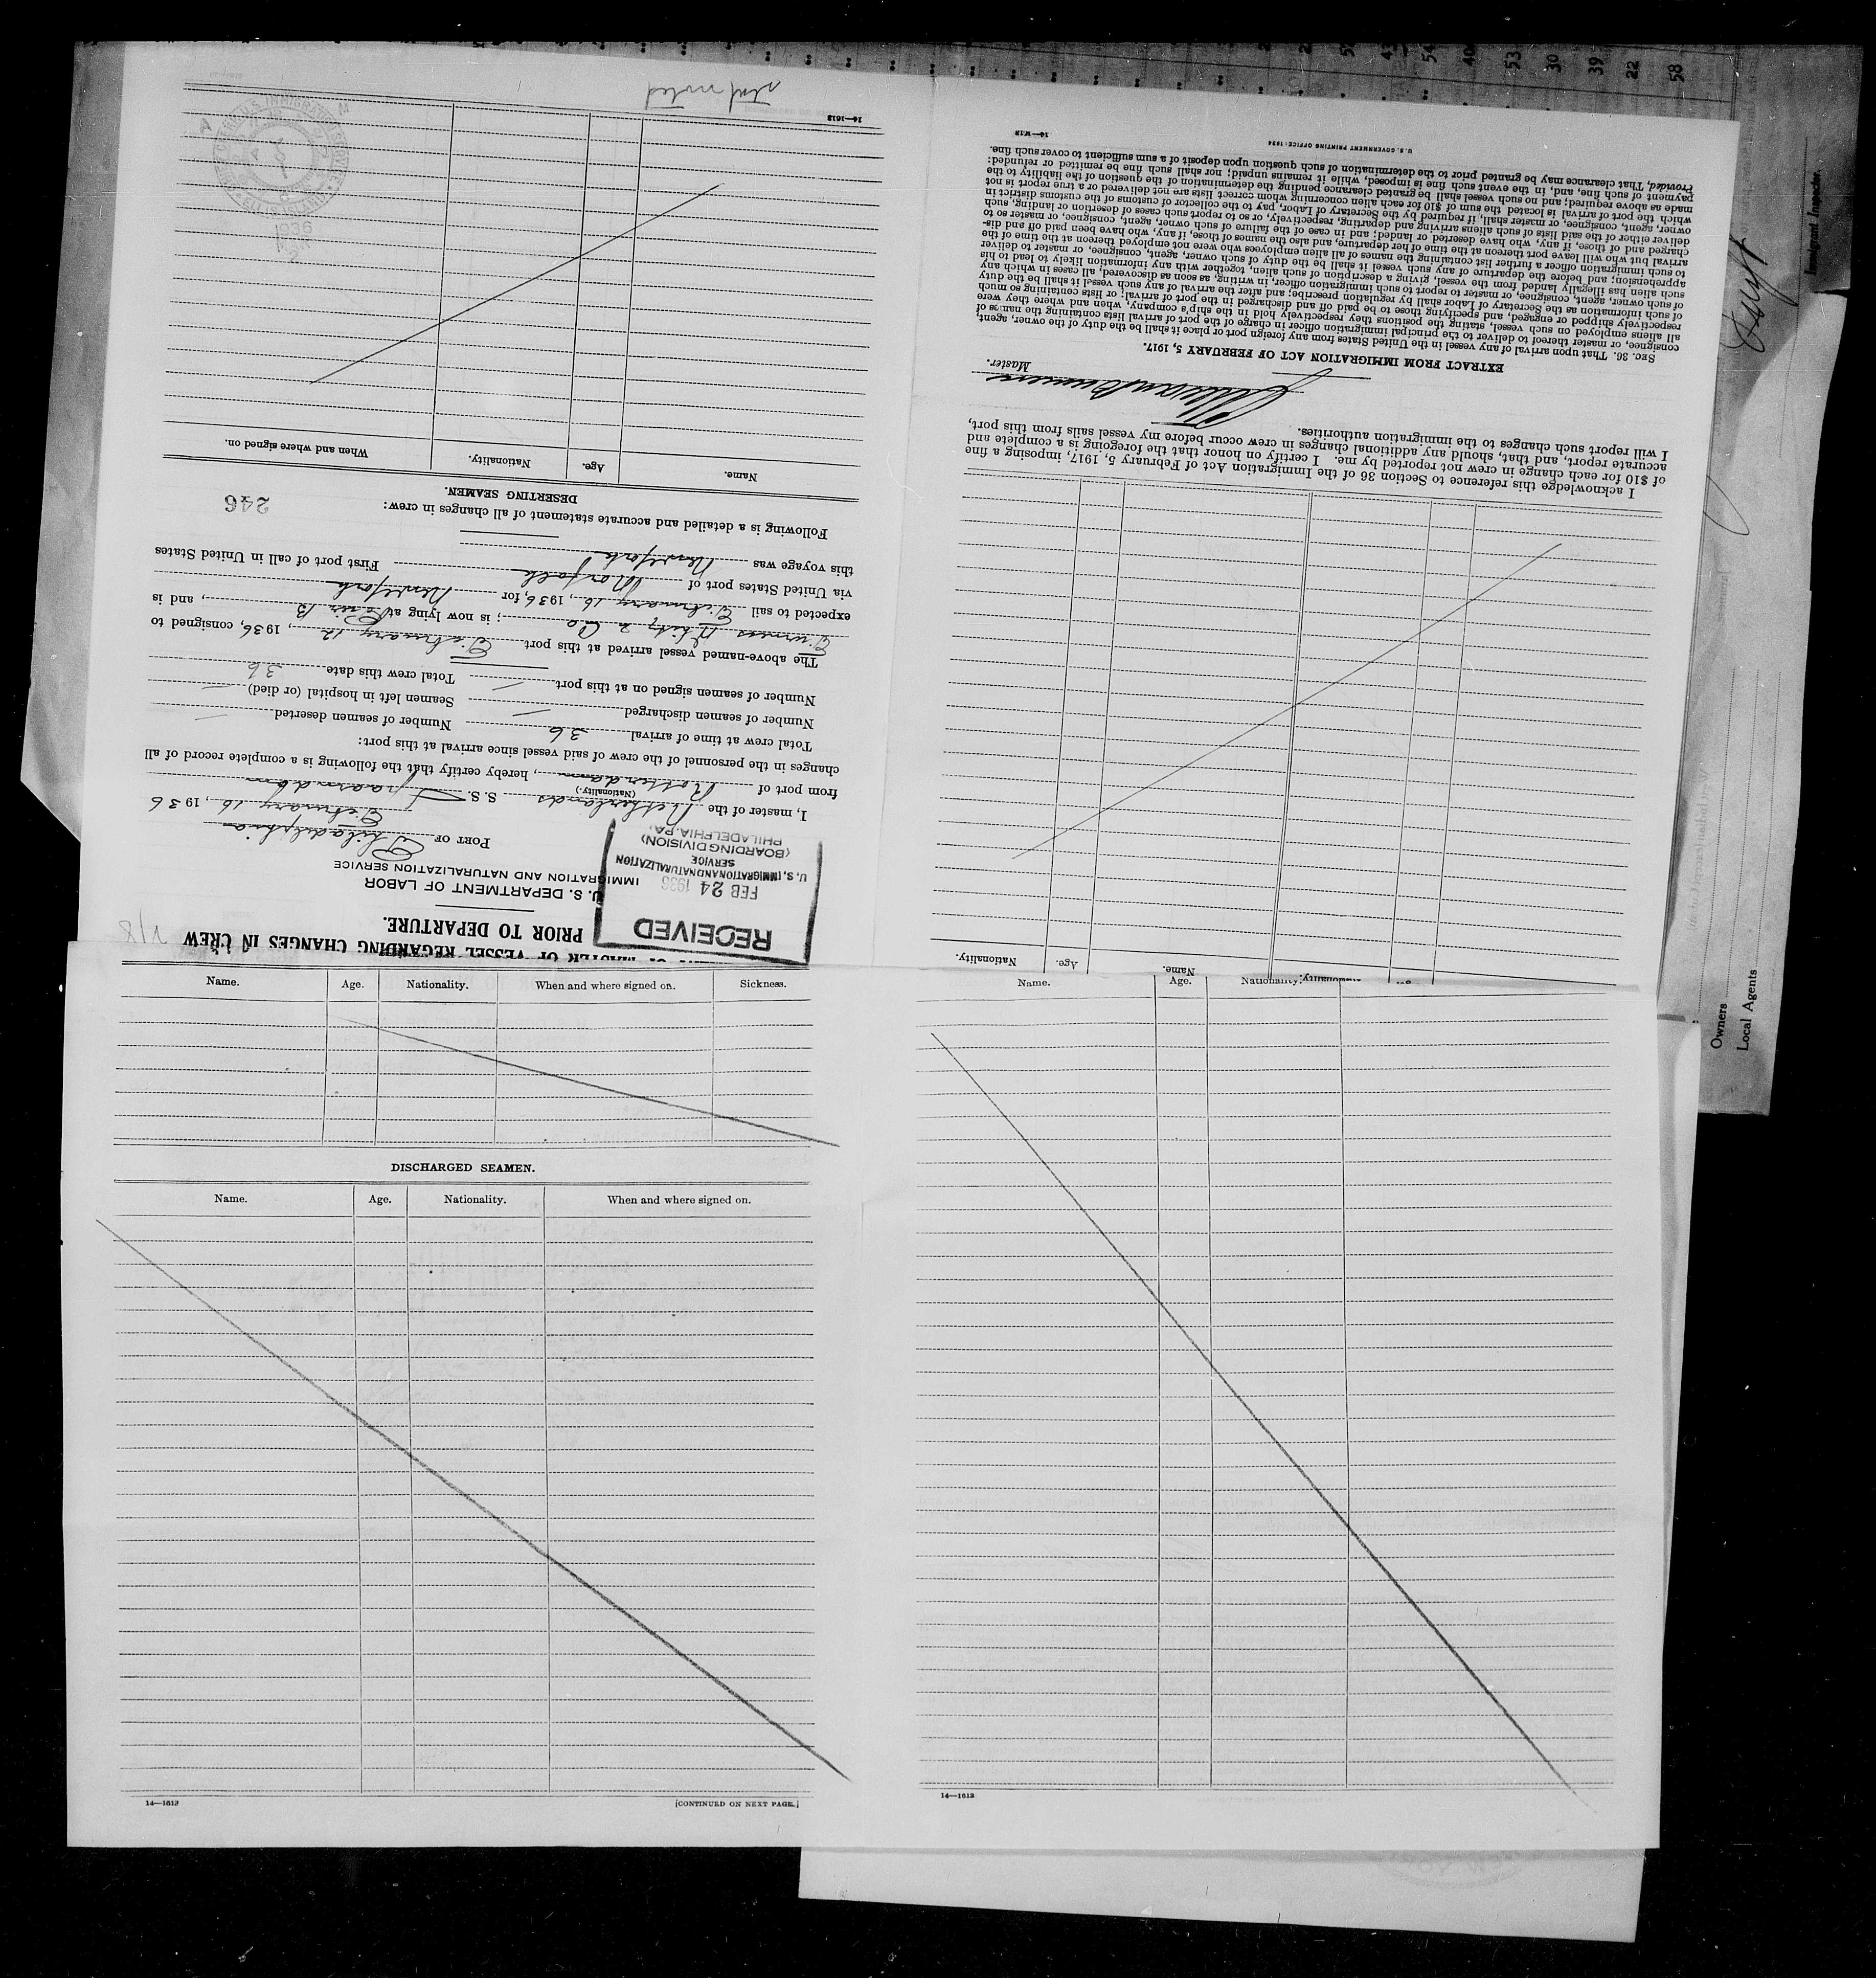 OF MASTER OF VESSEL REGARDING CHANGES IN CREW
PRIOR TO DEPARTURE.
U. S. DEPARTMENT OF LABOR
IMMIGRATION AND NATURALIZATION SERVICE
RECEIVED
FEB 24 1936
U. S. IMMIGRATION AND NATURALIZATION
SERVICE
(BOARDING DIVISION)
PHILADELPHIA, PA.
PORT OF Philadelphia
February 16, 1936
I, master of the Netherlands S.S.
(Nationality)
from port of Rotterdam, hereby certify that the following is a complete record of all
changes in the personnel of the crew of said vessel since arrival at this port:
Total crew at time of arrival 36 Number of seamen deserted —
Number of seamen discharged — Seamen left in hospital (or died) —
Number of seamen signed on at this port — Total crew this date 36
The above-named vessel arrived at this port February 12, 1936, consigned to
Furness Withy & Co; is now lying at Pier B, and is
expected to sail February 16, 1936, for New York
via United States port of Norfolk First port of call in United States
this voyage was New York
Following is a detailed and accurate statement of all changes in crew:
246
DESERTING SEAMEN.
Name. Age. Nationality. When and where signed on.
14—1613
1936
Name. Age. Nationality.
I acknowledge this reference to Section 36 of the Immigration Act of February 5, 1917, imposing a fine
of $10 for each change in crew not reported by me. I certify on honor that the foregoing is a complete and
accurate report, and that, should any additional changes in crew occur before my vessel sails from this port,
I will report such changes to the immigration authorities.
Master.
EXTRACT FROM IMMIGRATION ACT OF FEBRUARY 5, 1917.
SEC. 36. That upon arrival of any vessel in the United States from any foreign port or place it shall be the duty of the owner, agent,
consignee, or master thereof to deliver to the principal immigration officer in charge of the port of arrival lists containing the names of
all aliens employed on such vessel, stating the positions they respectively hold in the ship's company, when and where they were
respectively shipped or engaged, and specifying those to be paid off and discharged in the port of arrival; or lists containing so much
of such information as the Secretary of Labor shall by regulation prescribe; and after the arrival of any such vessel it shall be the duty
of such owner, agent, consignee, or master to report to such immigration officer, in writing, as soon as discovered, all cases in which any
such alien has illegally landed from the vessel, giving a description of such alien, together with any information likely to lead to his
apprehension; and before the departure of any such vessel it shall be the duty of such owner, agent, consignee, or master to deliver
to such immigration officer a further list containing the names of all alien employees who were not employed thereon at the time of the
arrival but who will leave port thereon at the time of her departure, and also the names of those, if any, who have been paid off and dis-
charged and of those, if any, who have deserted or landed; and in case of the failure of such owner, agent, consignee, or master so to
deliver either of the said lists of such aliens arriving and departing, respectively, or so to report such cases of desertion or landing, such
owner, agent, consignee, or master shall, if required by the Secretary of Labor, pay to the collector of customs of the customs district in
which the port of arrival is located the sum of $10 for each alien concerning whom correct lists are not delivered or a true report is not
made as above required; and no such vessel shall be granted clearance pending the determination of the question of the liability to the
payment of such fine, and, in the event such fine is imposed, while it remains unpaid; nor shall such fine be remitted or refunded:
Provided, That clearance may be granted prior to the determination of such question upon deposit of a sum sufficient to cover such fine.
U.S. GOVERNMENT PRINTING OFFICE: 1934
Name. Age. Nationality. When and where signed on. Sickness.
DISCHARGED SEAMEN.
Name. Age. Nationality. When and where signed on.
14—1613
[CONTINUED ON NEXT PAGE.]
Name. Age. Nationality.
14—1613
53
30
39
22
58
Immigrant Inspector.
Owners
Local Agents